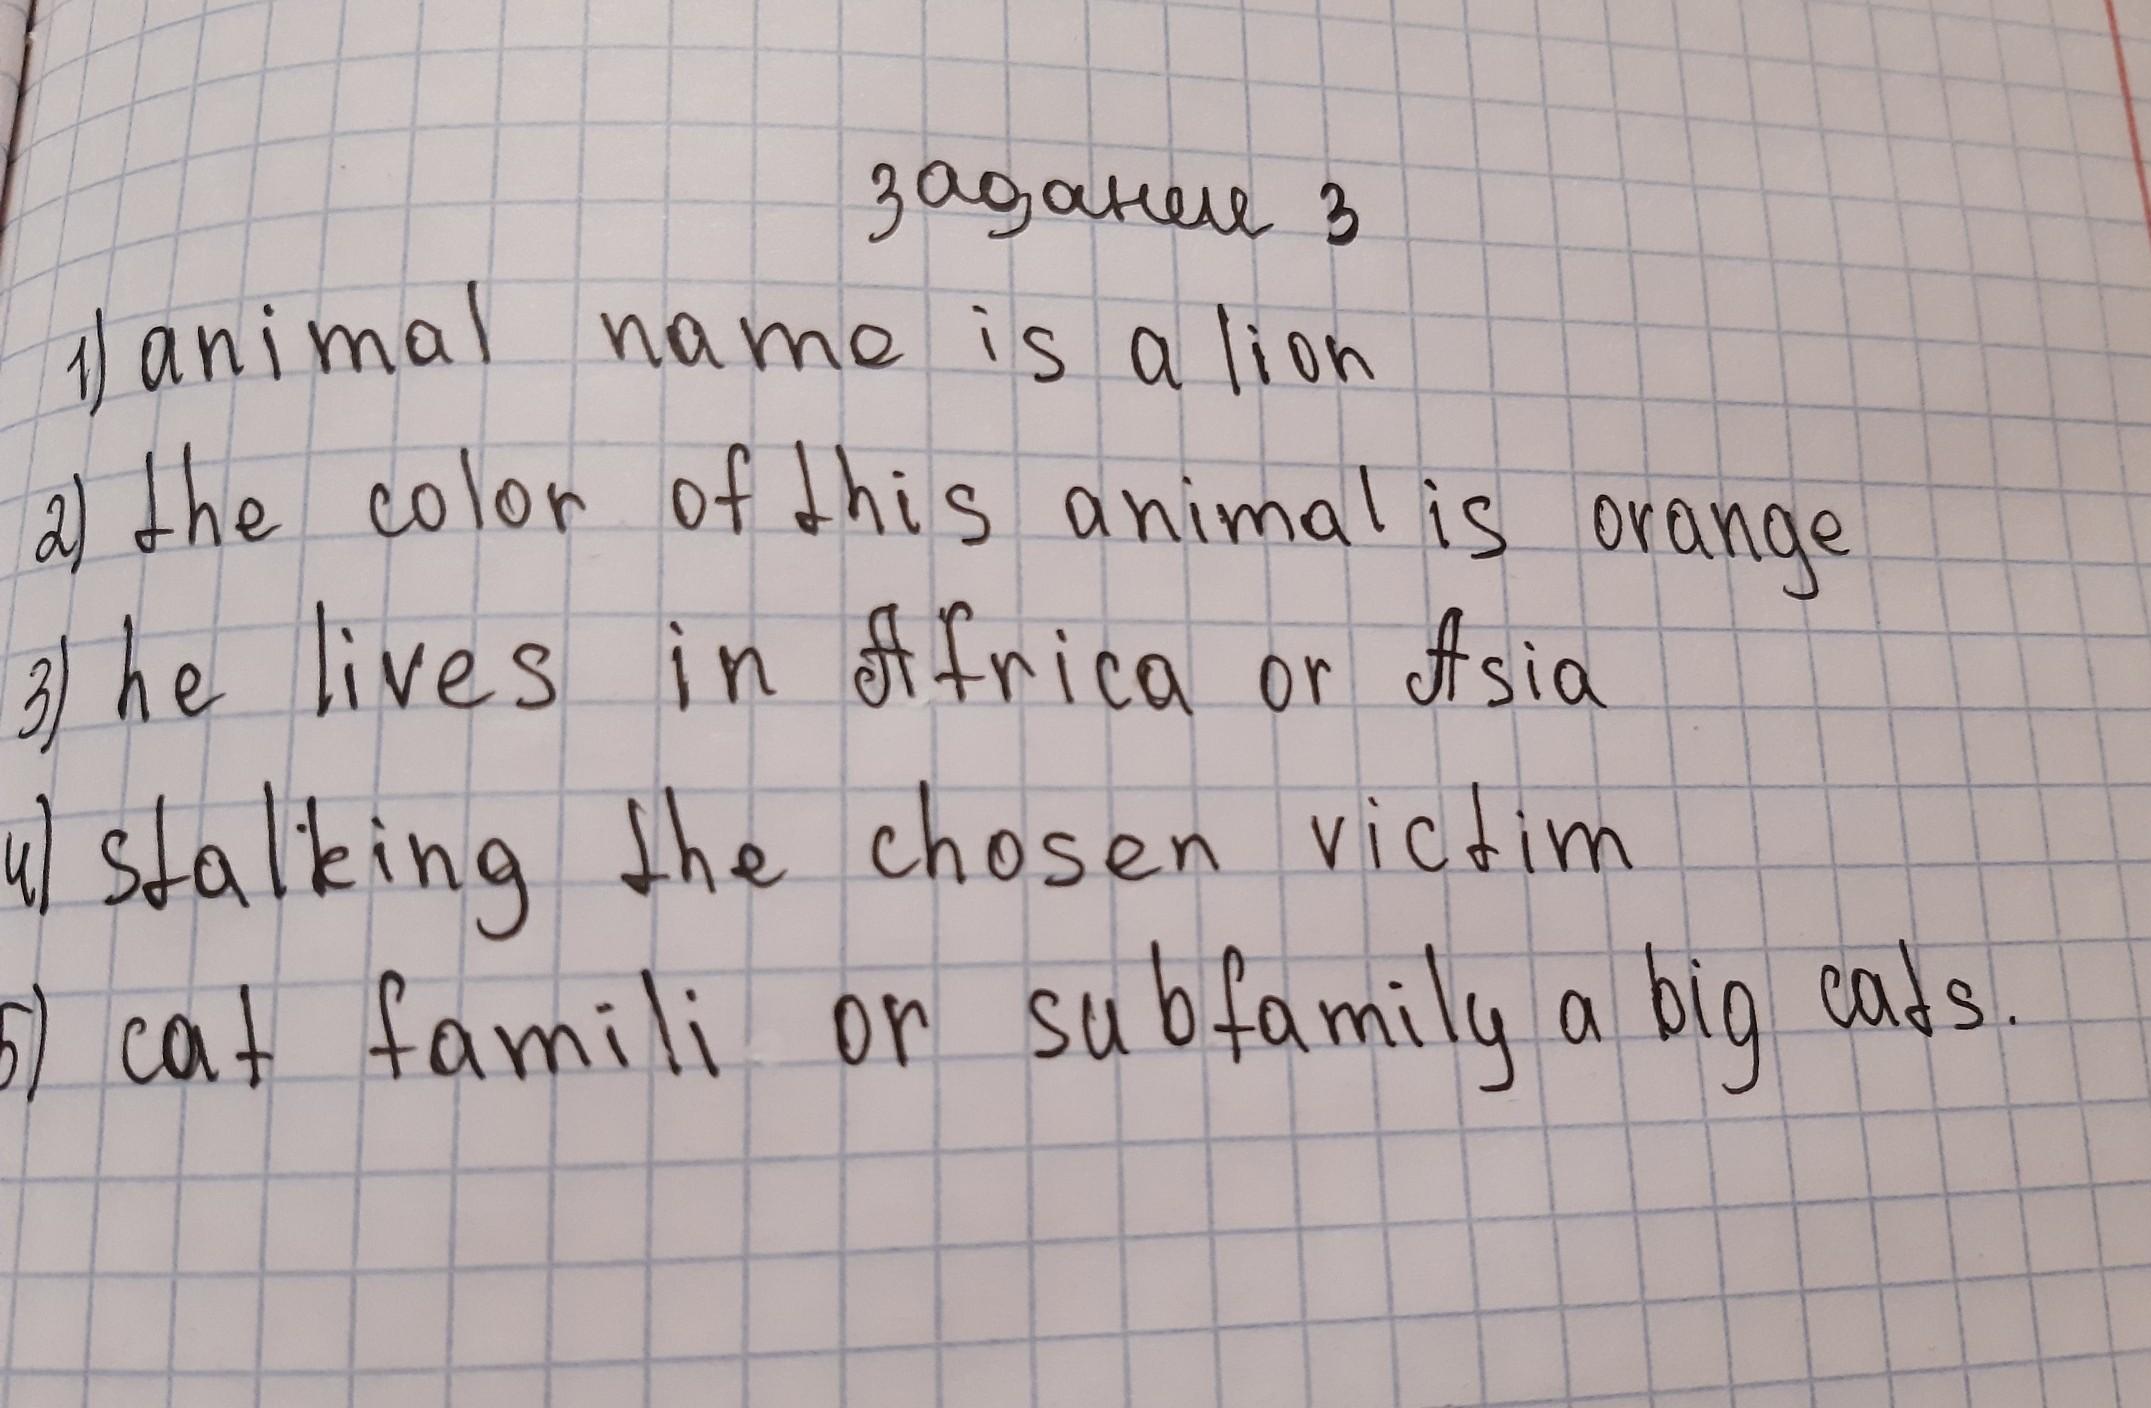 задание 3
1) animal name is a lion
2) the color of this animal is orange
3) he lives in Africa or Asia
4) stalking the chosen victim
5) cat famili or subfamily a big cats.